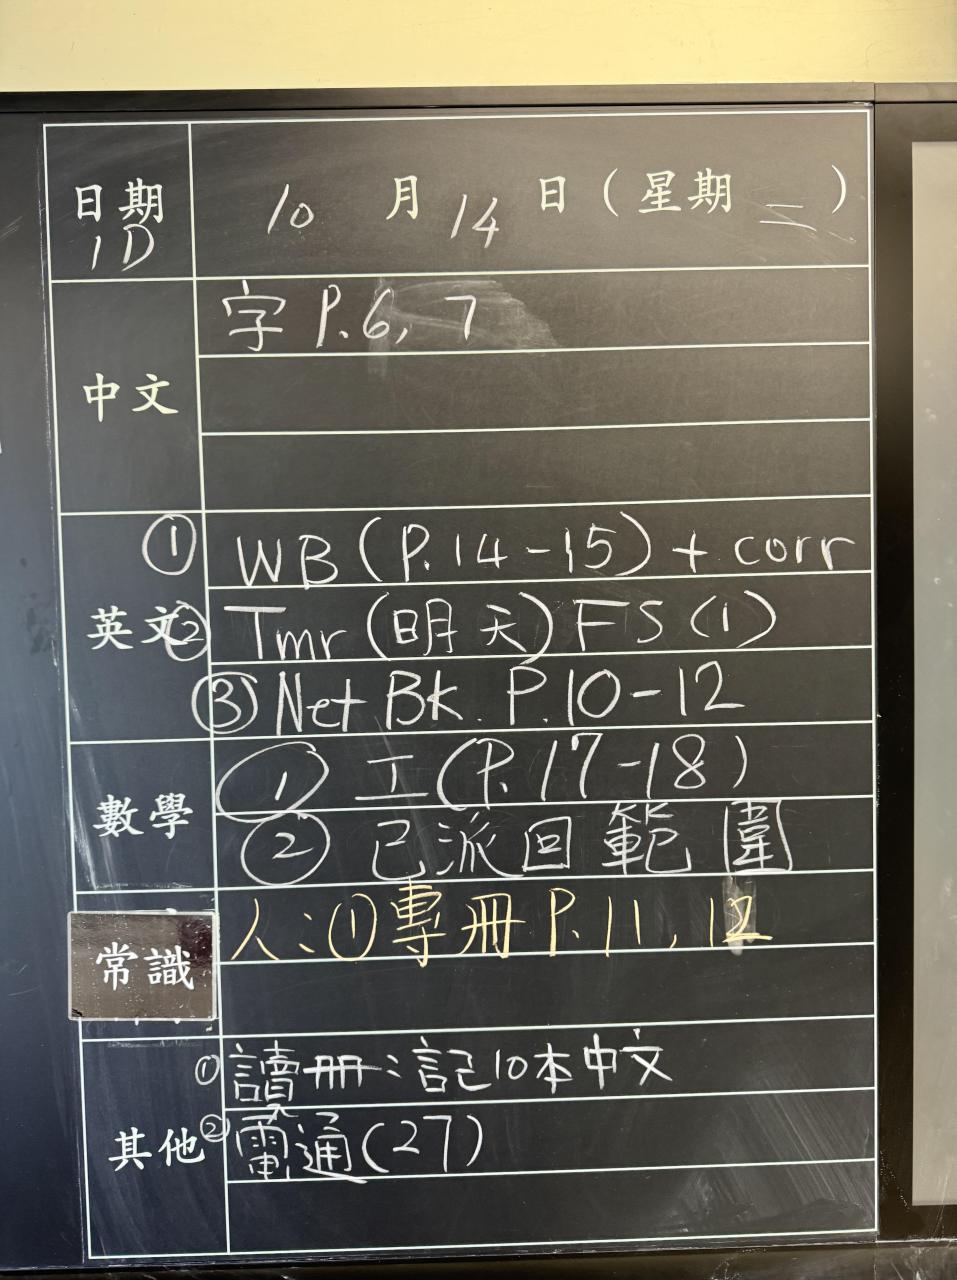 日期 10 月 14 日（星期 二 ）
1D
中文 字 P.6, 7
① WB (P.14-15) + corr
英文 ② Tmr (明天) FS (1)
③ Net BK. P.10-12
數學 ① 工 (P.17-18)
② 已派回範圍
常識 人：① 專冊 P.11, 12
① 讀冊：記10本中文
其他 ② 電通 (27)